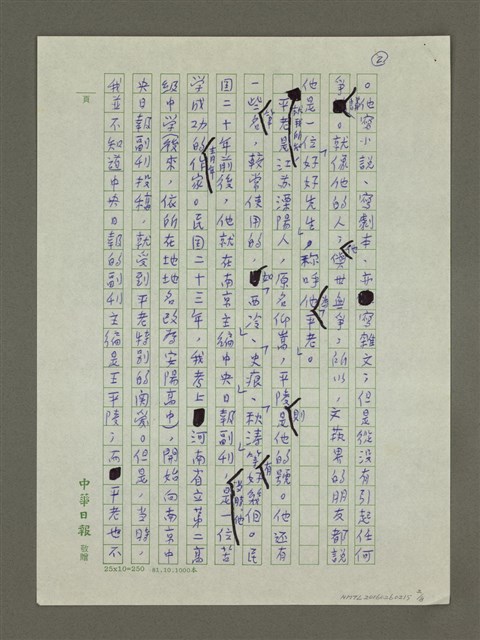 ②
。他寫小說、寫劇本、亦寫雜文；但是從沒有引起任何
爭議。就像他的人，他與世無爭，所以，文藝界的朋友都說
他是一位「好好先生」，稱呼他為平老。
就我所知，平老是江蘇溧陽人，原名仰嵩，平陵則是他的號。他還有
一些筆名，較常使用的，如「西冷」、「史痕」、「秋濤」等有好幾個。民
國二十年前後，他就在南京主編中央日報副刊，當時他是一位苦
學成功的青年作家。民國二十三年，我考上河南省立第二高
級中學（後來，依所在地地名改為安陽高中），開始向南京中
央日報副刊投稿，就受到平老特別的關愛。但是，當時，
我並不知道中央日報的副刊主編是王平陵；而平老也不
頁
中華日報 敬贈
25x10=250 81.10.1000本